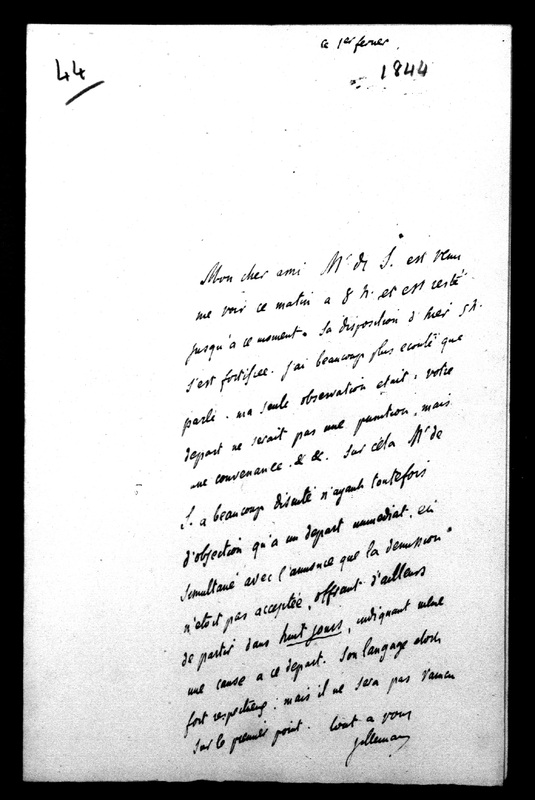 ce 1er fevrier.
44
1844
Mon cher ami Mr de S. est venu
me voir ce matin a 8 h. et est resté
jusqu'à ce moment. Sa disposition d'hier 5 h.
s'est fortifiée. j'ai beaucoup plus ecouté que
parlé. ma seule observation etait: votre
depart ne serait pas une punition, mais
une convenance. &c &c. Sur cela Mr de
S. a beaucoup discuté n'ayant toutefois
d'objection qu'a un depart immediat, et
simultané avec l'annonce que la demission
n'etoit pas acceptée, offrant d'ailleurs
de partir dans huit jours, indiquant même
une cause a ce depart. Son langage etoit
fort respectueux: mais il ne sera pas vaincu
sur le premier point. tout a vous
Villemain